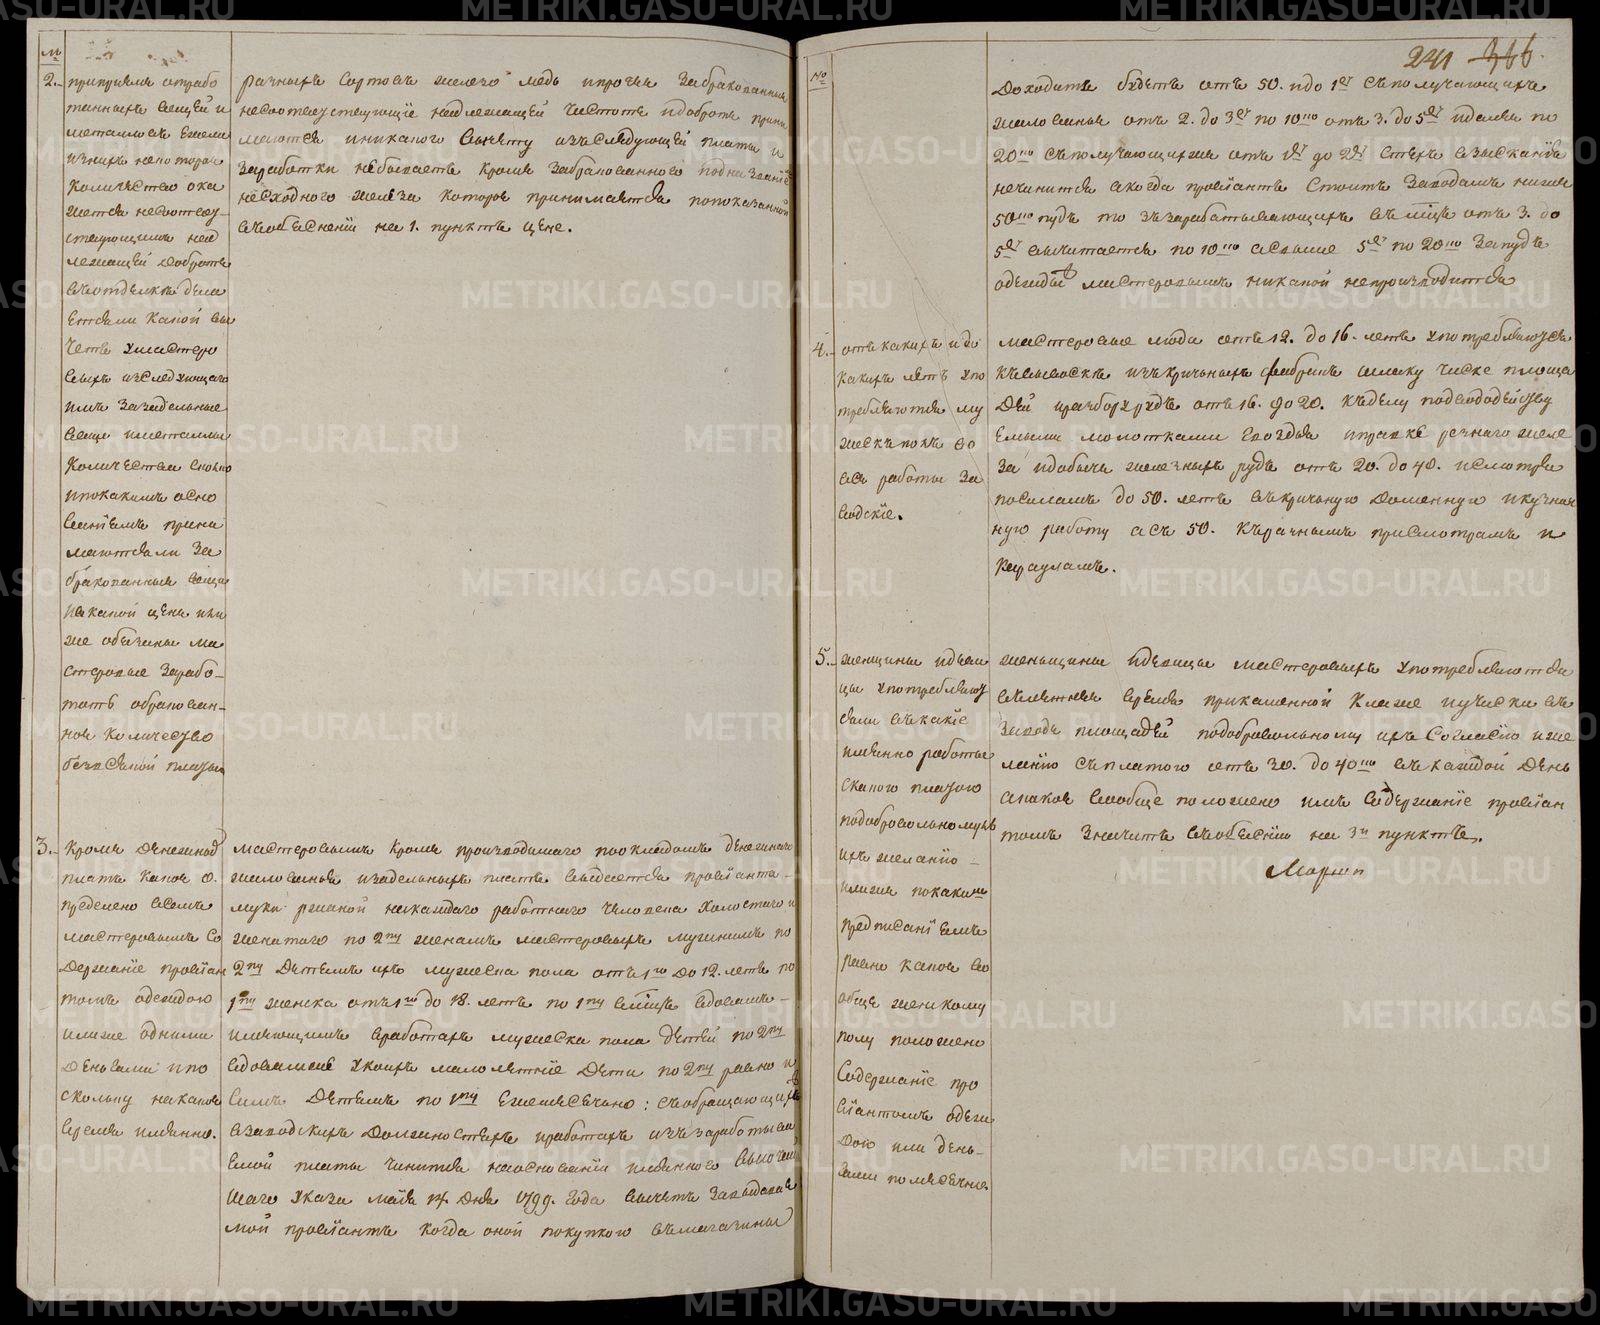 №
2.
при приемѣ отрабо
танныхъ вещей и
металловъ ежели
изнихъ некоторои
количество ока
жется несоотвѣт
ствующимъ над
лежащей доброте
въ отдѣлкѣ дѣла
ется ли какой вы
четъ умастеро
выхъ изследующаго
имъ зазадельные
вещи иметаллы
количества сколко
ипокакимъ осно
ваніемъ прини
маются ли за
бракованныя вещи
ивкакой цене или
же обязаны ма
стеровые зарабо
тать обракован
ное количество
безъ всякой платы
разныхъ сортовъ железо мѣдь ипрочие забракованныя
несоотвествующіе надлежащей чистотѣ идоброте прини
маются иникакого вычету изъ следующей платы и
заработки небываетъ кроме забракованнаго подназваніе
несходного железа которое принимается попоказанной
въобясненіи на 1. пунктъ цене.
3.
Кроме денежной
платы какое о
пределено всемъ
мастеровымъ со
держаніе провіан
томъ одеждою
илиже одними
деньгами ипо
скольку накакое
время именно.
мастеровымъ кроме производимаго поокладомъ денежнаго
жалованья изадельныхъ платъ выдается провіанта
муки ржаной накаждаго работнаго человека холостаго и
женатаго по 2 пу женамъ мастеровыхъ мужнимъ по
2 пу детемъ ихъ мужеска пола отъ 1го до 12. летъ по
1 пу женска отъ 1го до 18. летъ по 1 пу вмѣсяцъ вдовамъ
имеющимъ вработахъ мужеска пола детей по 2 пу
вдовамже укоихъ малолетніе дети по 2 пу равно и
симъ детемъ по 1 пу ежемесечно: съобращающихся
взаводскихъ должностяхъ иработахъ изъ заработыва
емой платы чинится наосновании имяннаго высочай
шаго указа маія 14. дня 1799. года вычетъ завыдавае
мой провіантъ когда оной покупкою вмагазины
241 366.
№
доходитъ будетъ отъ 50. идо 1 р съполучающихъ
жалованья отъ 2. до 3 р по 10 ко отъ 3. до 5 р идалее по
20 ко съполучающихже отъ 1 р до 2 р стехъ взысканія
нечинится акогда провіантъ стоитъ заводамъ ниже
50 ко пудъ то зъзарабатывающихъ вмѣсяцъ отъ 3. до
5 р вычитается по 10 ко асвыше 5 р по 20 ко запудъ
одежды мастеровымъ никакой непроизводится
4.
откакихъ идо
какихъ летъ упо
требляются му
жескъ полъ во
всѣ работы за
водскіе.
мастеровые люди отъ 12. до 16. летъ употребляются
къвывоскѣ изъкричныхъ фабрикъ шлаку чиске площа
дей иразборурудъ отъ 16. до 20. къделу подвододейству
емыми молотками гвоздья иправке резнаго желе
за идобыче железныхъ рудъ отъ 20. до 40. исмотря
посиламъ до 50. летъ въкричную доменную икузнеч
ную работу асъ 50. къразнымъ присмотрамъ и
карауламъ.
5.
женщины идеви
цы употребляют
сяли вкакіе
именно работы
скакою платою
подобровольномуль
ихъ желанію
илиже покакимъ
предписаніемъ
равно какое во
обще женскому
полу положено
содержаніе про
віантомъ одеж
дою или день
гами помесечно.
женьщины идевицы мастеровыхъ употребляются
влетнее время прикаменной кладке ичиске въ
заводе площадей подобровольному ихъ согласію ижe
ланію съплатою отъ 30. до 40 ко въкаждой день
акакое вообще положено имъ содержаніе провіан
томъ значитъ въобясніи на 3й пунктъ.